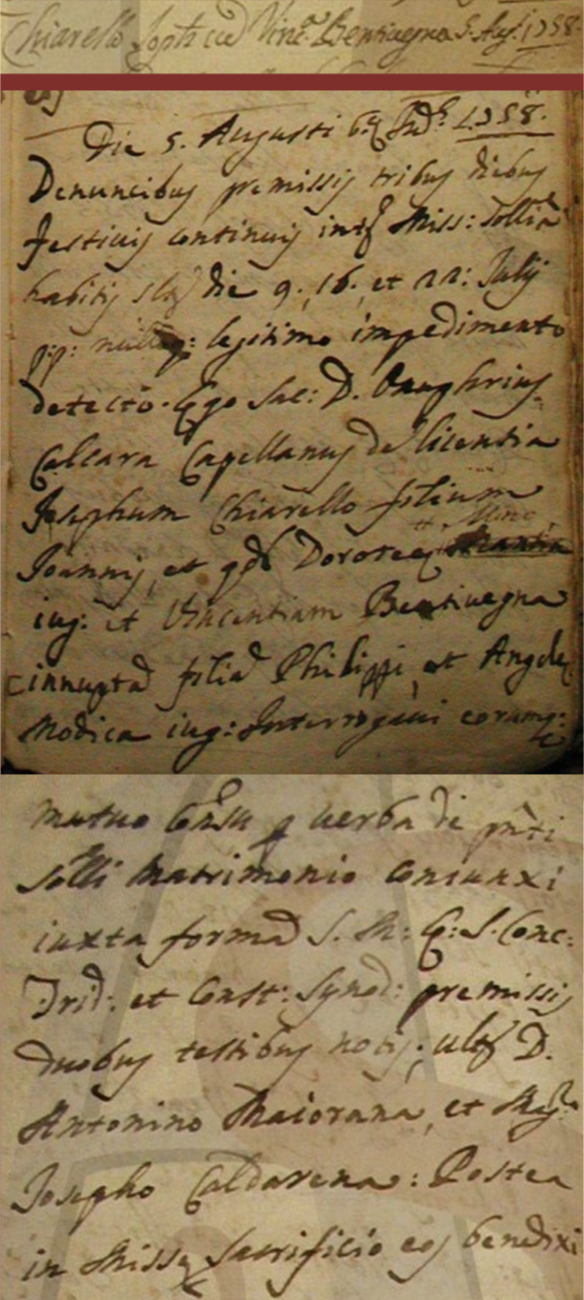 Chiarello Joph: cu Vinc.ª Bentivegna 5. Aug. 1758
Die 5. Augusti 6ę Ind: 1758.
Denuncibus premissis tribus diebus
festivis continuis intr Miss: sollia
habitis slz die 9. 16. et 22: July
p:p: nulloq: legitimo impedimento
detecto. Ego Sac: D. Onuphrius
Calcara Capellanus de licentia
Josephum Chiarello filium
Mino
Joannis, et qd Dorotee
iug: et Vincentiam Bentivegna
innupta filia Philippi, et Angele
Modica iug: Interrogavi corumq:
mutuo Consu p verba de pnti
solli Matrimonio coniunxi
iuxta forma S. M: E: S. Conc:
Trid: et Const: Synod: premissis
duobus testibus notis: ultr D.
Antonino Maiorana, et Mg.
Josepho Caldarena: Postea
in Misse Sacrificio eos benedixi